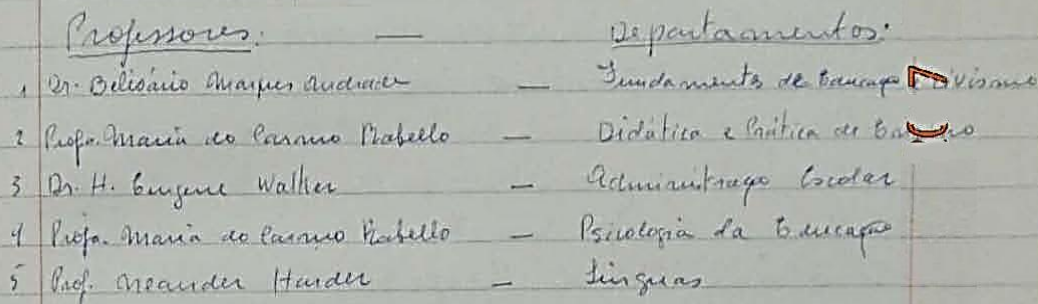 Professores: — Departamentos:
1 Dr. Belisário Marques Andrade — Fundamentos de Educação Civismo
2 Profa. Maria do Carmo Rabello — Didática e Prática de
3 Dr. H. Eugene Walker — Administração Escolar
4 Profa. Maria do Carmo Rabello — Psicologia da Educação
5 Prof. Neander Harder — Línguas